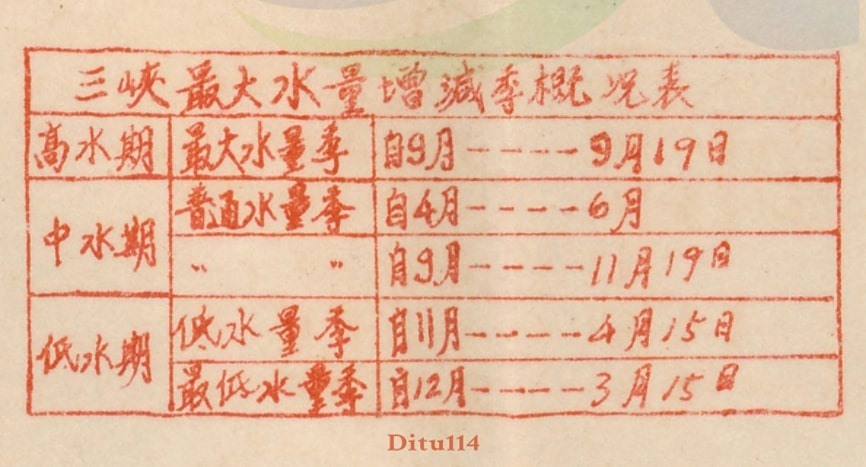 三峽最大水量增減季概况表
高水期 最大水量季 自9月----9月19日
中水期 普通水量季 自4月----6月
〃 〃 自9月----11月19日
低水期 低水量季 自11月----4月15日
最低水量季 自12月----3月15日
Ditu114